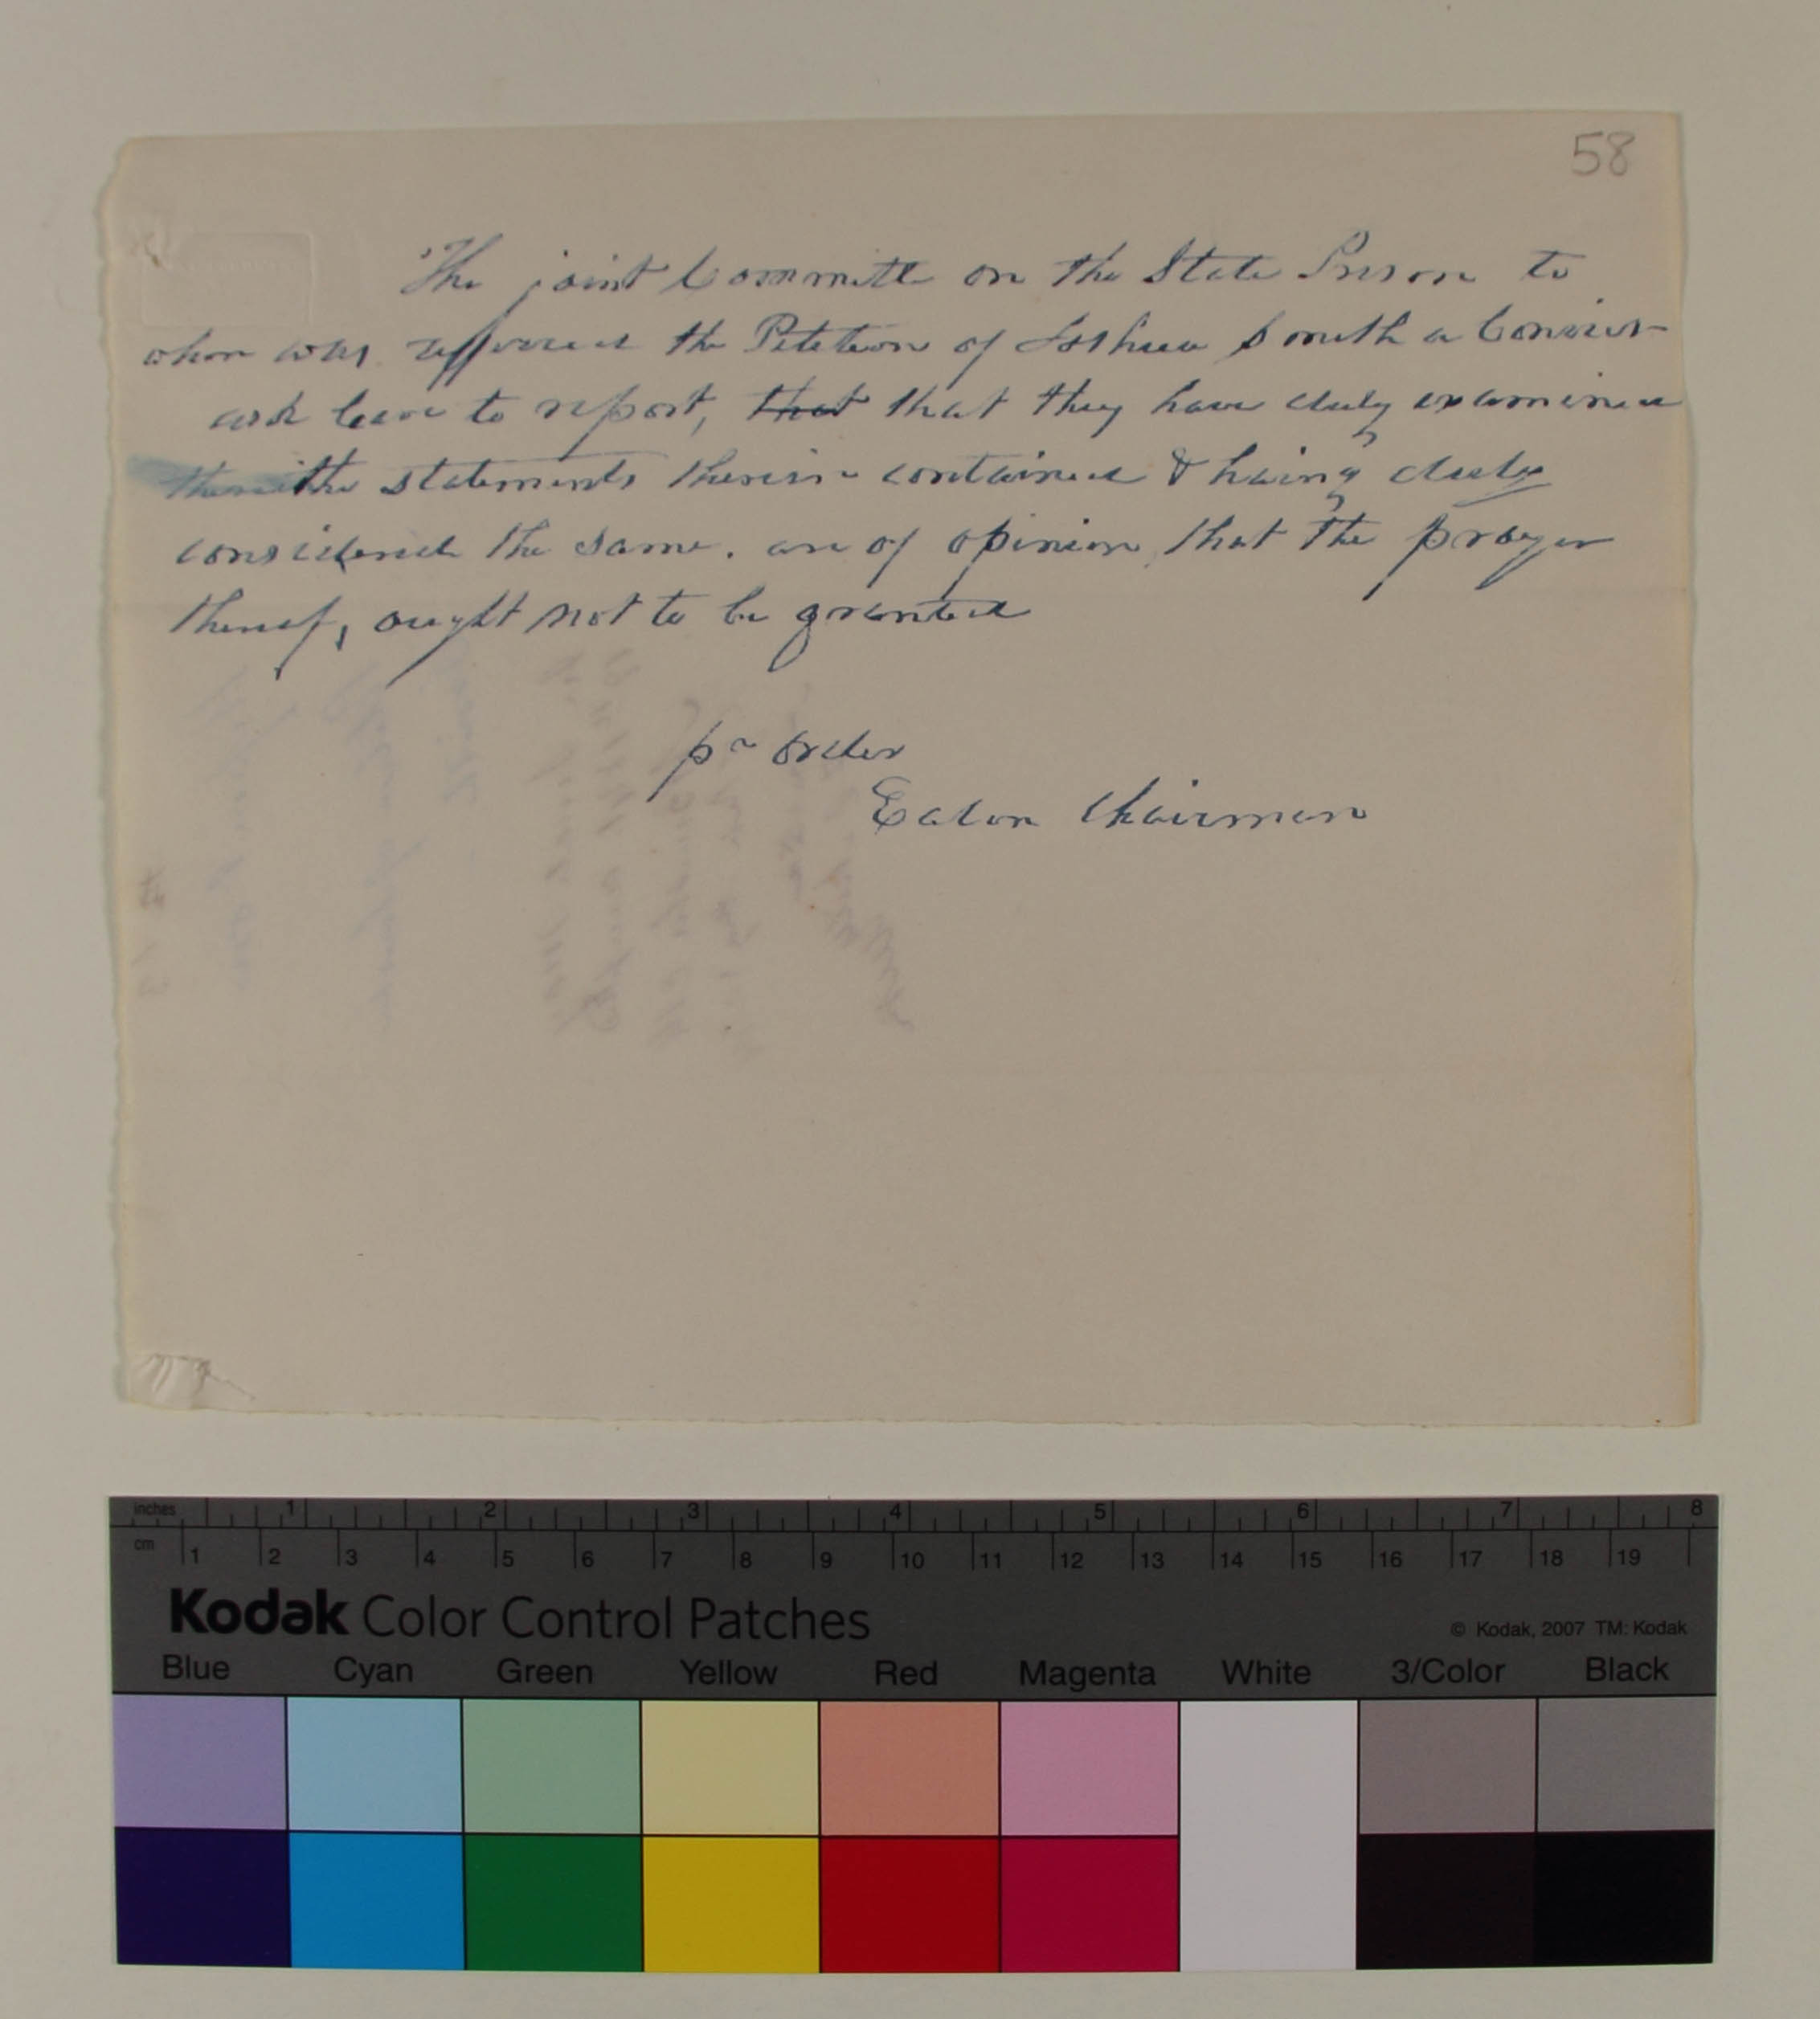 58
The joint Committe on the State Prison to
whom was refferred the Petetion of Joshua Smith a Convict
ask leave to report, that that they have duly examined
the statements therein contained & having duly
considered the same. are of opinion that the prayer
thereof, ought not to be granted
pr order
Eaton Chairman
inches 1 2 3 4 5 6 7 8
cm 1 2 3 4 5 6 7 8 9 10 11 12 13 14 15 16 17 18 19
Kodak Color Control Patches
© Kodak, 2007 TM: Kodak
Blue Cyan Green Yellow Red Magenta White 3/Color Black